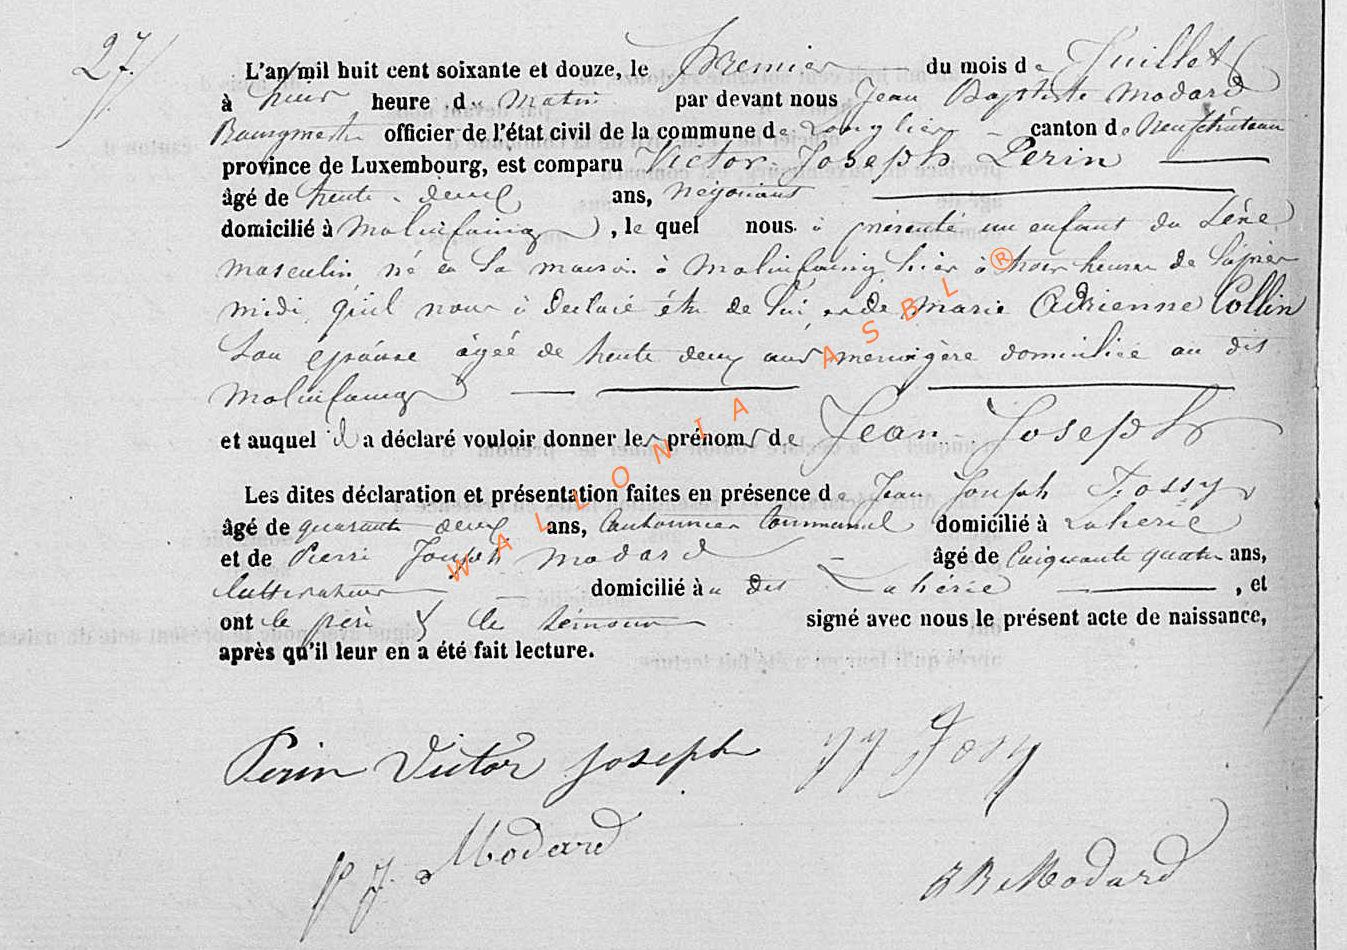 27.
L'an mil huit cent soixante et douze, le premier du mois de Juillet
à heure du Matin par devant nous Jean Baptiste Modard
Bourgmestre officier de l'état civil de la commune de Longlier canton de Neufchateau
province de Luxembourg, est comparu Victor Joseph Perin
âgé de trente deux ans, négociant
domicilié à Molinfaing, le quel nous a présenté un enfant du Sexe
masculin né en Sa maison à Molinfaing hier à heures de l'après
midi qu'il nous a déclaré être de lui et de marie Adrienne Collin
Son épouse agée de trente deux ans menagère domiciliée au dit
Molinfaing
et auquel il a déclaré vouloir donner les prénoms de Jean Joseph
Les dites déclaration et présentation faites en présence de Jean Joseph Fossy
âgé de quarante deux ans, Cantonnier Communal domicilié à Laherie
et de Pierre Joseph Modard âgé de Cinquante quatre ans,
Cultivateur domicilié à au dit Lahérie, et
ont le père & les témoins signé avec nous le présent acte de naissance,
après qu'il leur en a été fait lecture.
WALLONIA ASBL ®
Perin Victor Joseph JJ Fossy
P J. Modard
JB Modard